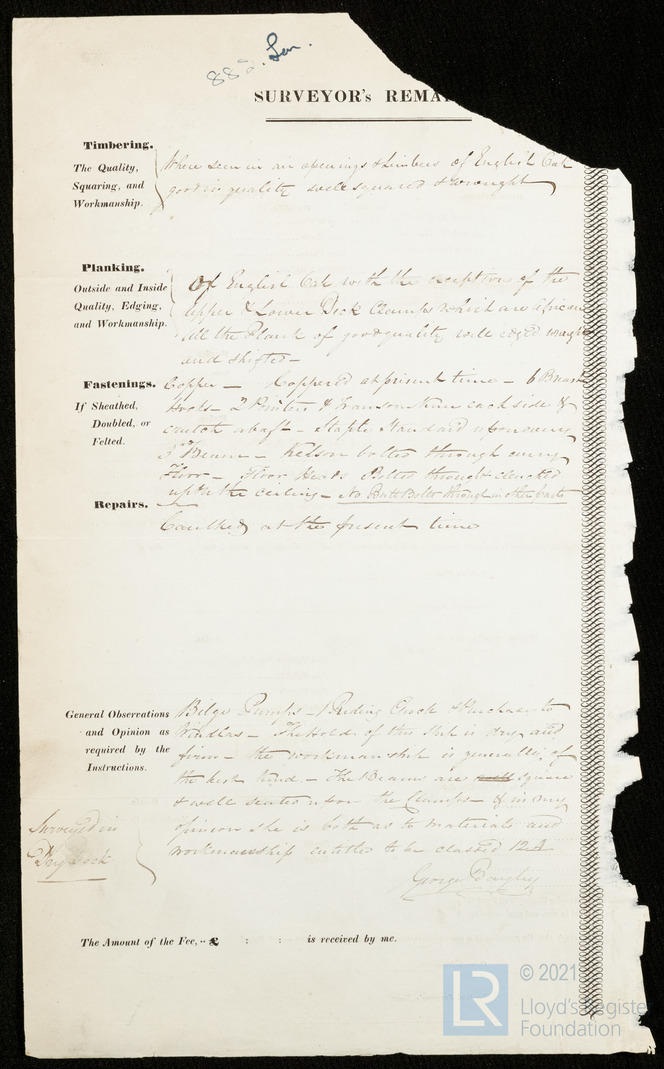 882 Lon.
SURVEYOR's REMA
Timbering.
The Quality,
Squaring, and
Workmanship.
Where seen in air openings & limbers of English Oak
good in quality well squared & wrought
Planking.
Outside and Inside
Quality, Edging,
and Workmanship.
Of English Oak with the exception of the
Upper & Lower Deck Clamps which are African
All the Plank of good quality well edged wrought
and shifted –
Fastenings.
If Sheathed,
Doubled, or
Felted.
Copper – Coppered at present time – 6 Breast
Hooks – 2 Pointers & Transom Knee each side &
crutch abaft – Staple Standard upon every
3d Beam – Kelson bolted through every
Floor – Floor Heads Bolted through & clenched
upon the ceiling – No Butt Bolts through in other parts
Repairs.
Caulked at the present time
General Observations
and Opinion as
required by the
Instructions.
Bilge Pumps – 1 Riding & Purchase to
Windlas – The Hold of this Ship is dry and
firm – the workmanship is generally of
the best kind – The Beams are square
& well seated upon the Clamps – & in my
opinion she is both as to materials and
workmanship entitled to be classed 12A
Surveyed in
Dry Dock
George Bayley
The Amount of the Fee, ·· £ : : is received by me.
© 2021
LR
Lloyd's Register
Foundation